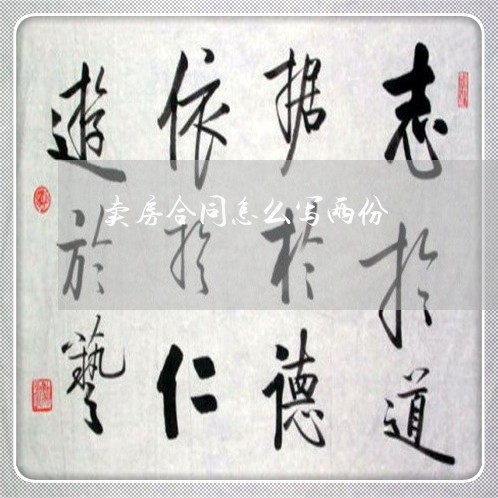 志於道
据於德
依於仁
遊於藝
卖房合同怎么写两份